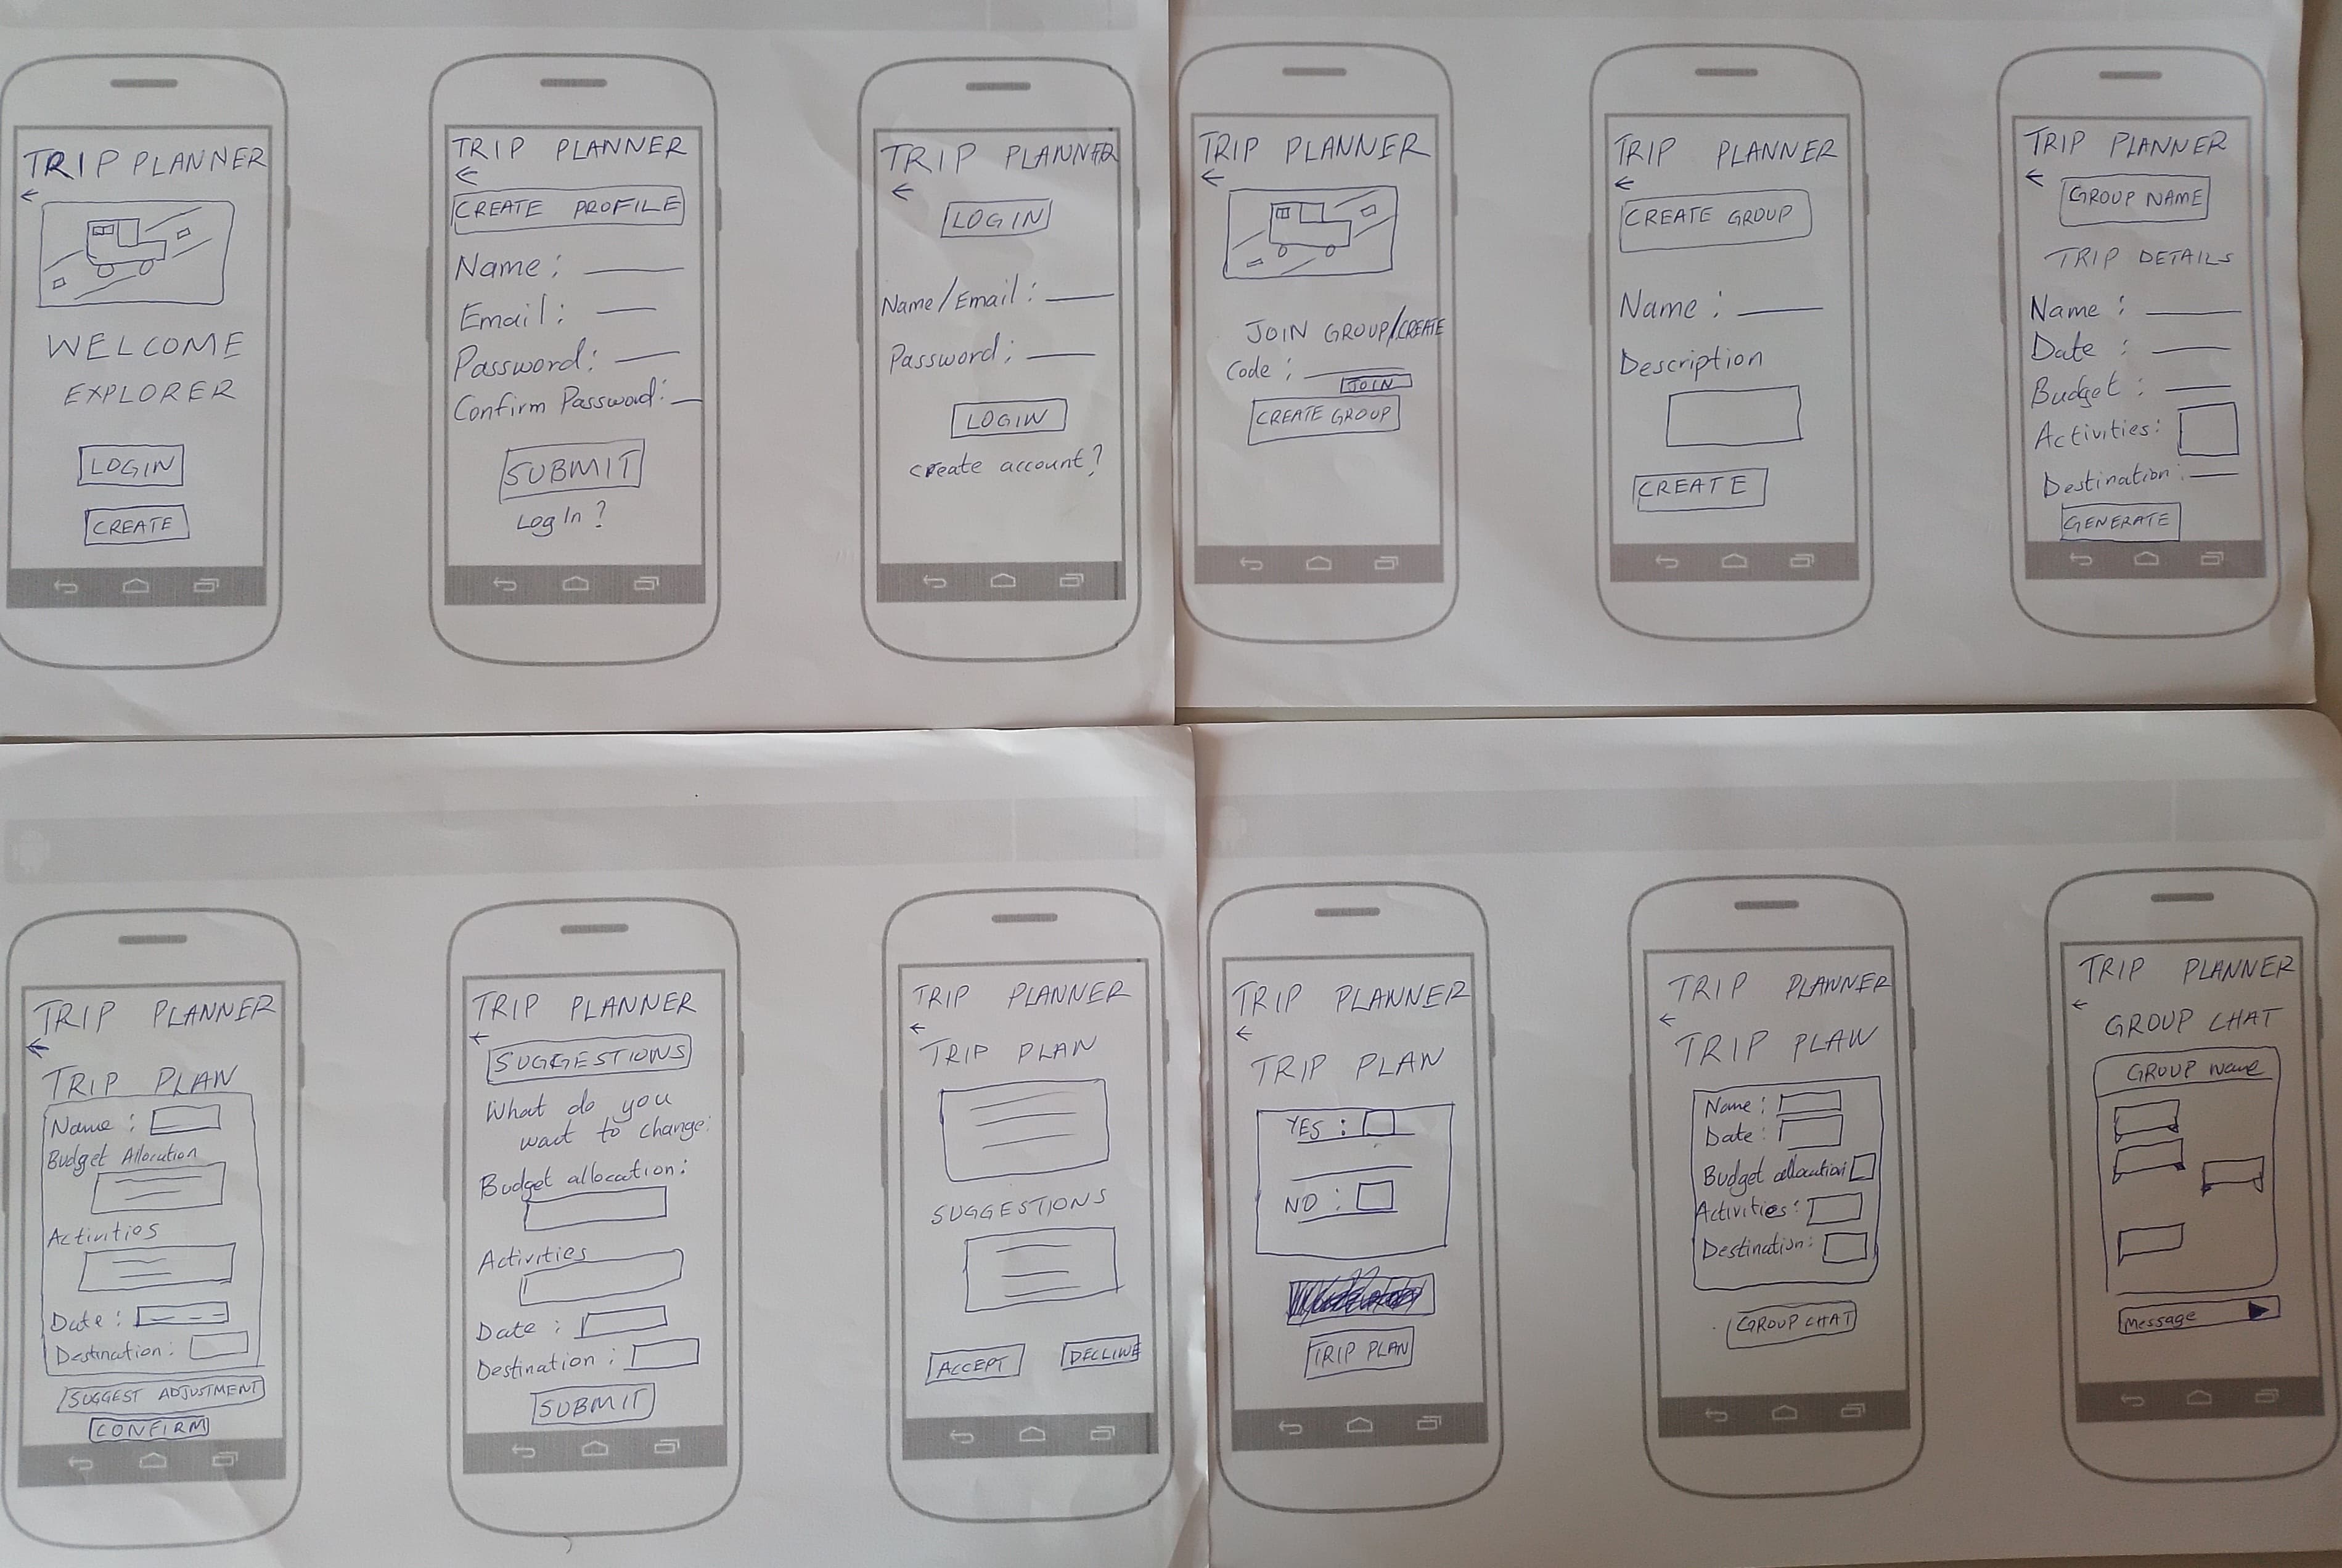 TRIP PLANNER
WELCOME
EXPLORER
LOGIN
CREATE
TRIP PLANNER
CREATE PROFILE
Name :
Email :
Password :
Confirm Password :
SUBMIT
Log In ?
TRIP PLANNER
LOGIN
Name/Email :
Password :
LOGIN
create account ?
TRIP PLANNER
JOIN GROUP/CREATE
Code :
JOIN
CREATE GROUP
TRIP PLANNER
CREATE GROUP
Name :
Description
CREATE
TRIP PLANNER
GROUP NAME
TRIP DETAILS
Name :
Date :
Budget :
Activities :
Destination :
GENERATE
TRIP PLANNER
TRIP PLAN
Name :
Budget Allocation
Activities
Date :
Destination :
SUGGEST ADJUSTMENT
CONFIRM
TRIP PLANNER
SUGGESTIONS
What do you
want to change:
Budget allocation :
Activities
Date :
Destination :
SUBMIT
TRIP PLANNER
TRIP PLAN
SUGGESTIONS
ACCEPT DECLINE
TRIP PLANNER
TRIP PLAN
YES :
NO :
TRIP PLAN
TRIP PLANNER
TRIP PLAN
Name :
Date :
Budget allocation:
Activities :
Destination :
GROUP CHAT
TRIP PLANNER
GROUP CHAT
GROUP Name
Message